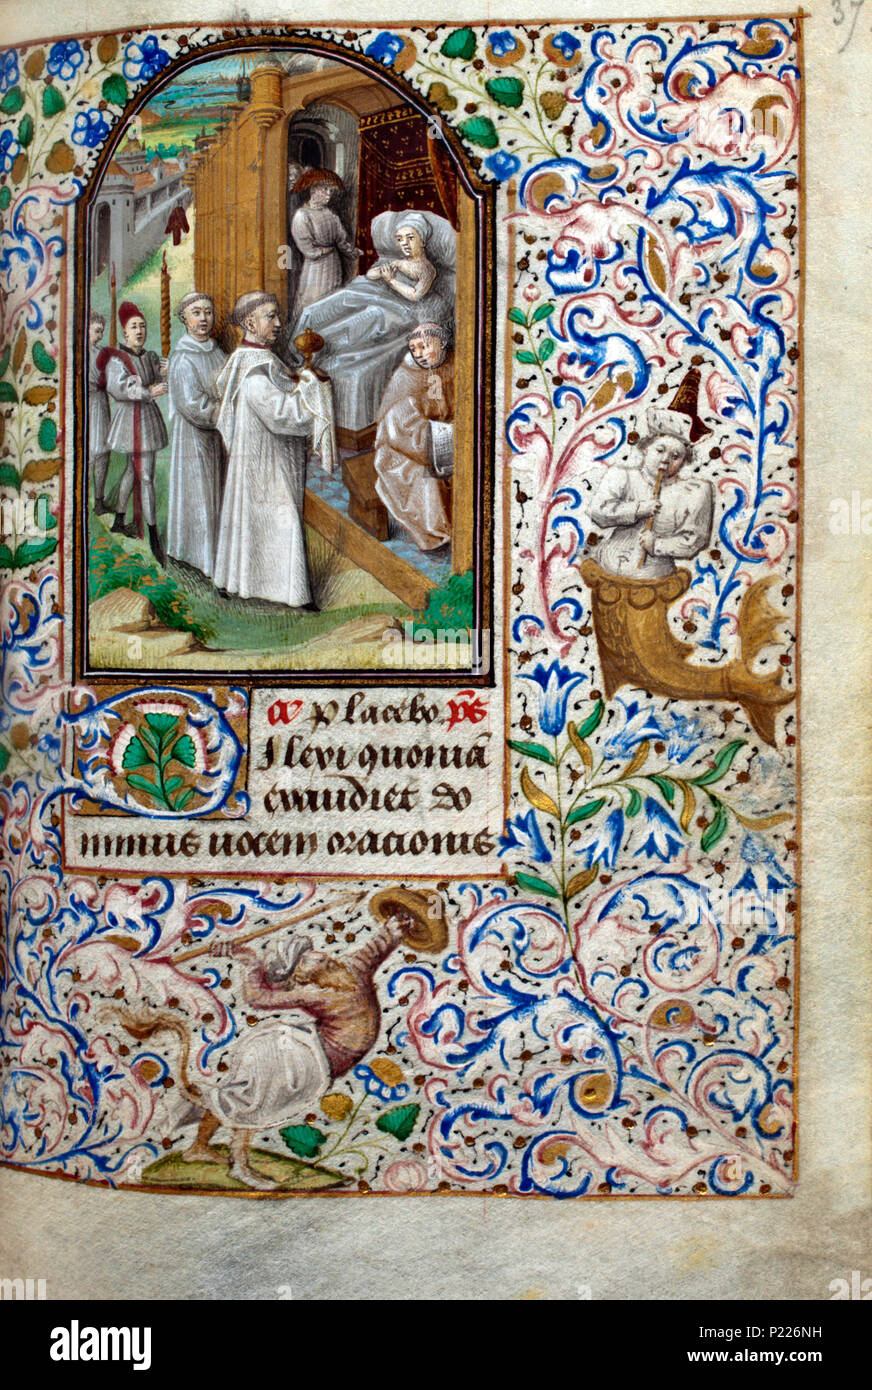 37
a Placebo. ps
Dilexi quoniā
exaudiet do
minus uocem orationis
alamy
Image ID: P226NH
www.alamy.com